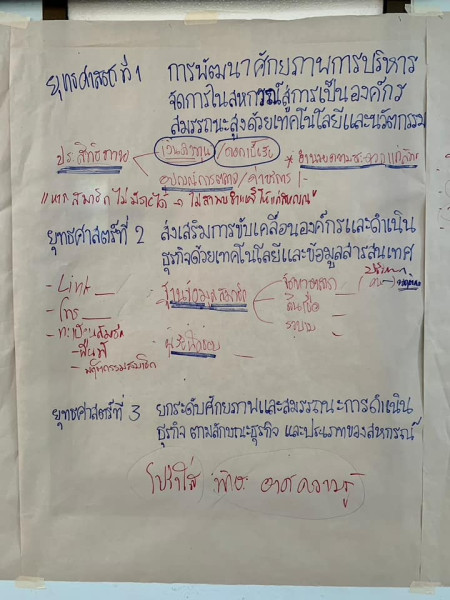 ยุทธศาสตร์ ที่ 1 การพัฒนาศักยภาพการบริหาร
จัดการในสหกรณ์สู่การเป็นองค์กร
สมรรถนะสูงด้วยเทคโนโลยีและนวัตกรรม
ประสิทธิภาพ / ดอกเบี้ย *
อุปกรณ์การตลาด /
"หากสมาชิกไม่มีรายได้ → ไม่สามารถชำระหนี้ให้แก่สหกรณ์"
ยุทธศาสตร์ที่ 2 ส่งเสริมการขับเคลื่อนองค์กรและดำเนิน
ธุรกิจด้วยเทคโนโลยีและข้อมูลสารสนเทศ
- Link
- โทร
ฐานข้อมูลสมาชิก
จัดหาตลาด
สินเชื่อ
รวบรวม
- ทะเบียนสมาชิก
- พื้นที่
- พฤติกรรมสมาชิก
ยุทธศาสตร์ที่ 3 ยกระดับศักยภาพและสมรรถนะการดำเนิน
ธุรกิจ ตามลักษณะธุรกิจ และประเภทของสหกรณ์
โปร่งใส องค์ความรู้